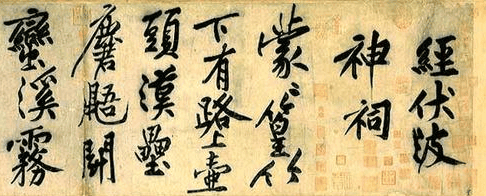 經伏波
神祠
蒙〻篁竹
下有路上壺
頭漢壘
麏鼯鬭
蠻溪霧